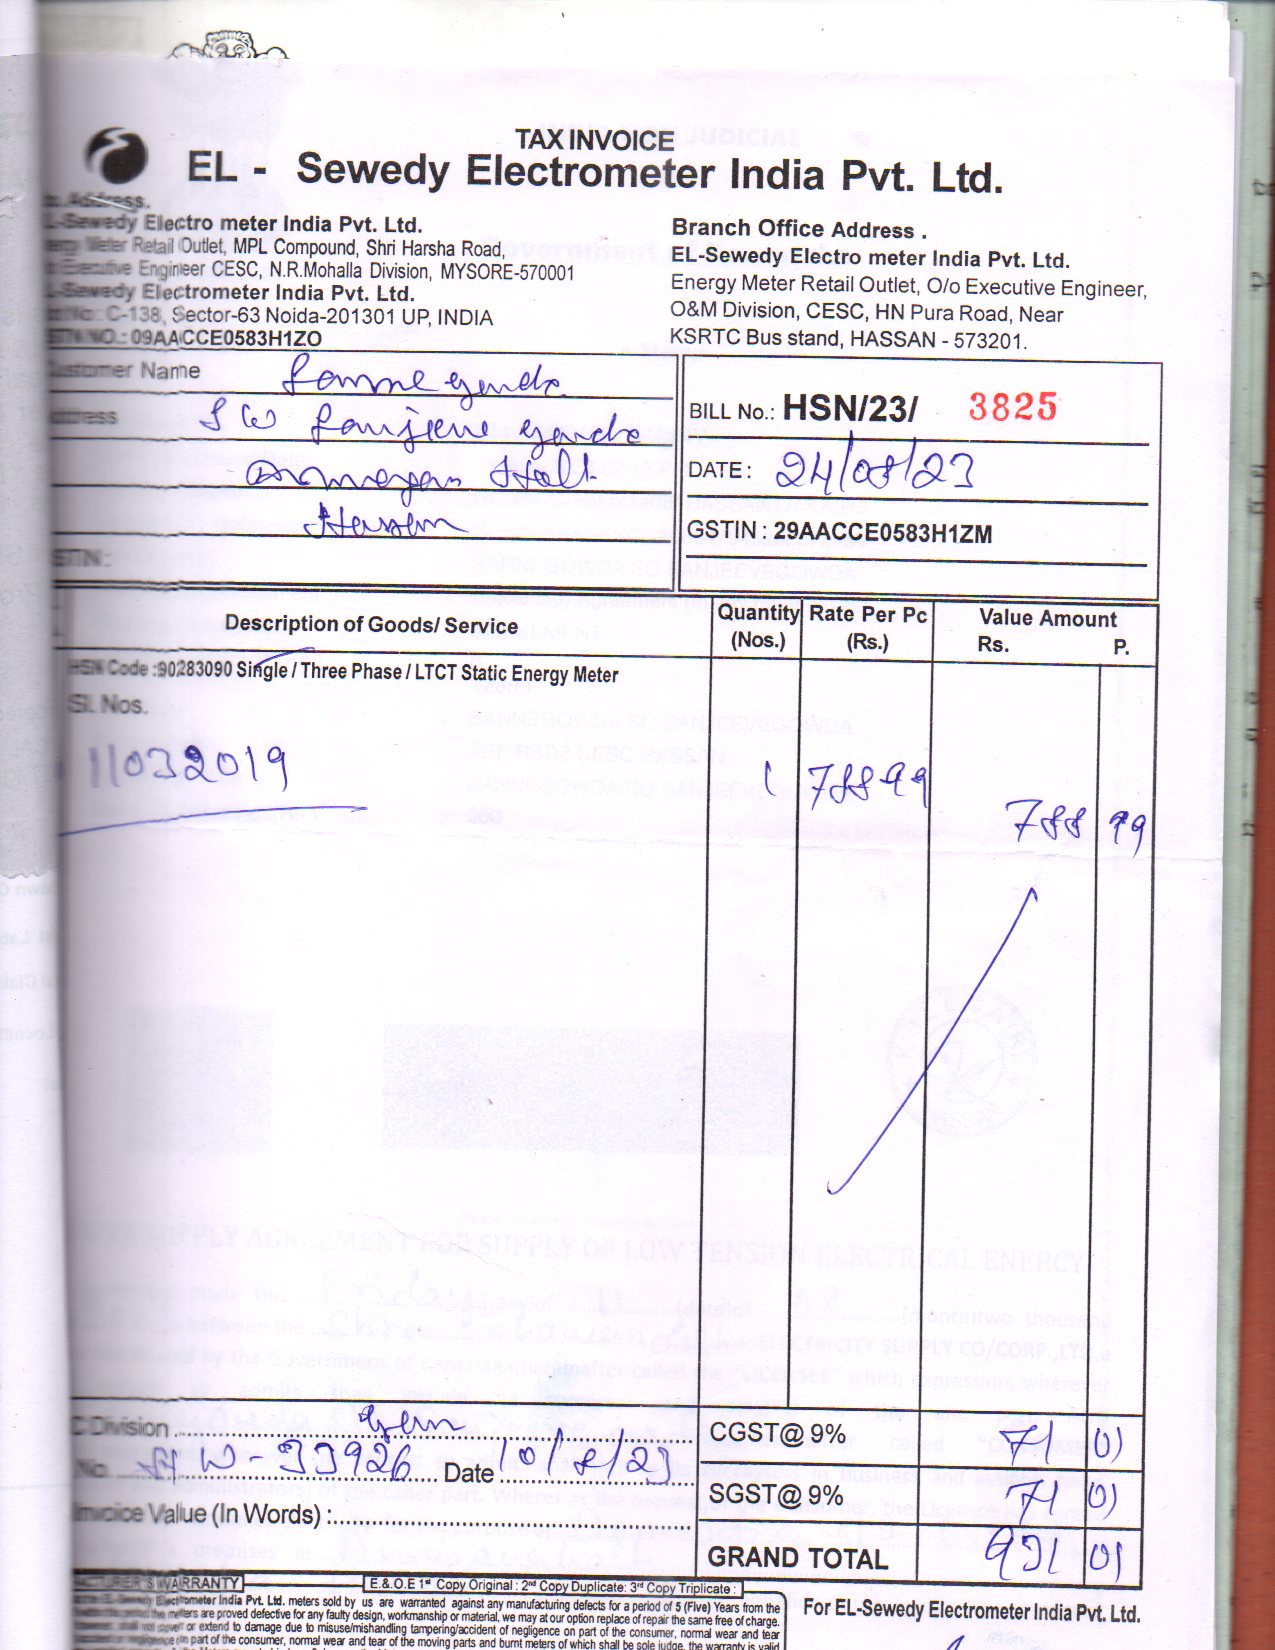 TAX INVOICE
EL - Sewedy Electrometer India Pvt. Ltd.
Address.
EL-Sewedy Electro meter India Pvt. Ltd.
Energy Meter Retail Outlet, MPL Compound, Shri Harsha Road,
Executive Engineer CESC, N.R.Mohalla Division, MYSORE-570001
EL-Sewedy Electrometer India Pvt. Ltd.
C-138, Sector-63 Noida-201301 UP, INDIA
GSTIN NO.: 09AACCE0583H1ZO
Branch Office Address .
EL-Sewedy Electro meter India Pvt. Ltd.
Energy Meter Retail Outlet, O/o Executive Engineer,
O&M Division, CESC, HN Pura Road, Near
KSRTC Bus stand, HASSAN - 573201.
Customer Name Sannegowda
Address S/o Sanjeevegowda
Halli
Hassan
GSTIN :
BILL No.: HSN/23/ 3825
DATE : 24/08/23
GSTIN : 29AACCE0583H1ZM
Description of Goods/ Service Quantity (Nos.) Rate Per Pc (Rs.) Value Amount Rs. P.
HSN Code :90283090 Single / Three Phase / LTCT Static Energy Meter
Sl. Nos.
11032019 1 788 99 788 99
C Division CGST@ 9% 71 01
No. 33926 Date 10/8/23
SGST@ 9% 71 01
Invoice Value (In Words) :
GRAND TOTAL 931 01
MANUFACTURER'S WARRANTY E.& O.E 1st Copy Original : 2nd Copy Duplicate: 3rd Copy Triplicate :
Electrometer India Pvt. Ltd. meters sold by us are warranted against any manufacturing defects for a period of 5 (Five) Years from the
the meters are proved defective for any faulty design, workmanship or material, we may at our option replace of repair the same free of charge.
or extend to damage due to misuse/mishandling tampering/accident of negligence on part of the consumer, normal wear and tear
part of the consumer, normal wear and tear of the moving parts and burnt meters of which shall be sole judge, the warranty is valid
For EL-Sewedy Electrometer India Pvt. Ltd.